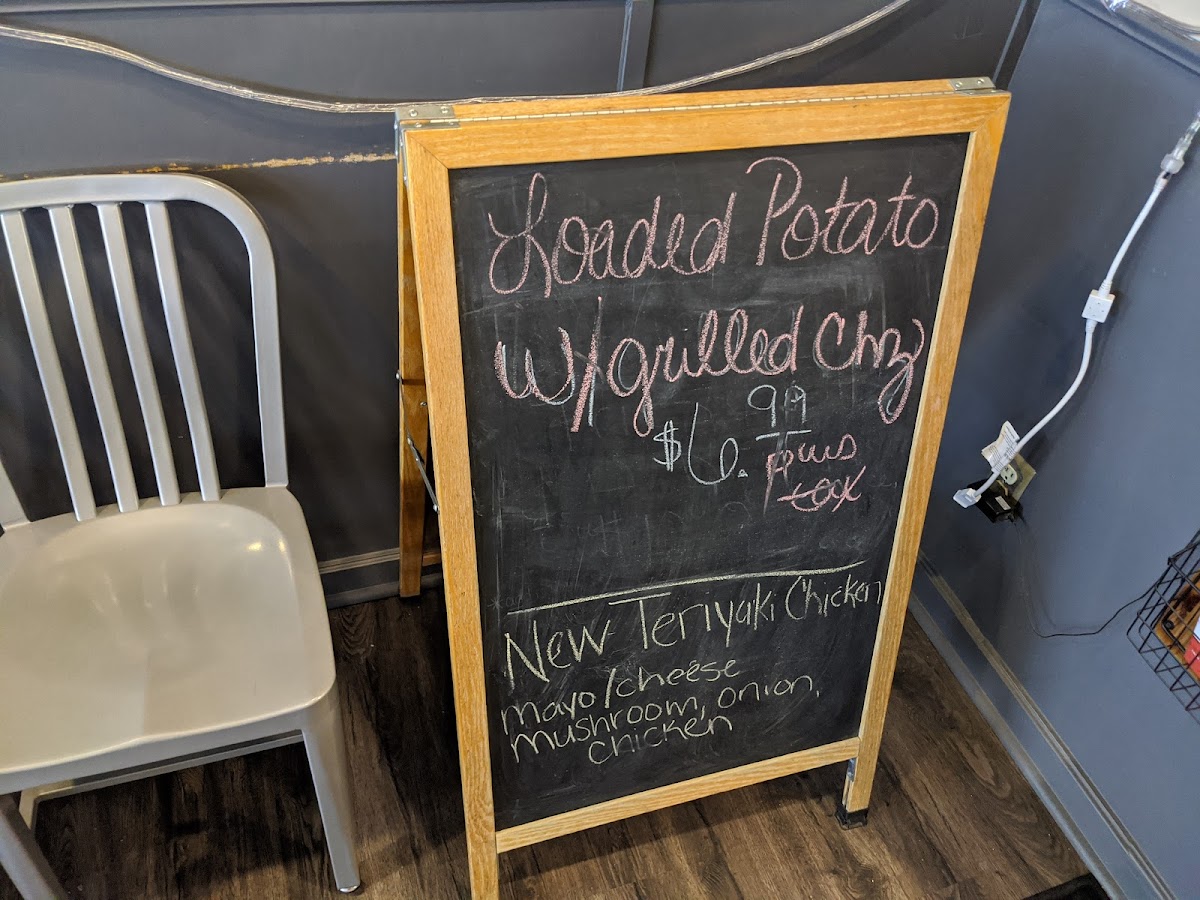 Loaded Potato
w/grilled Chz
$6.99
Plus
tax
New Teriyaki Chicken
mayo/cheese
mushroom, onion,
chicken